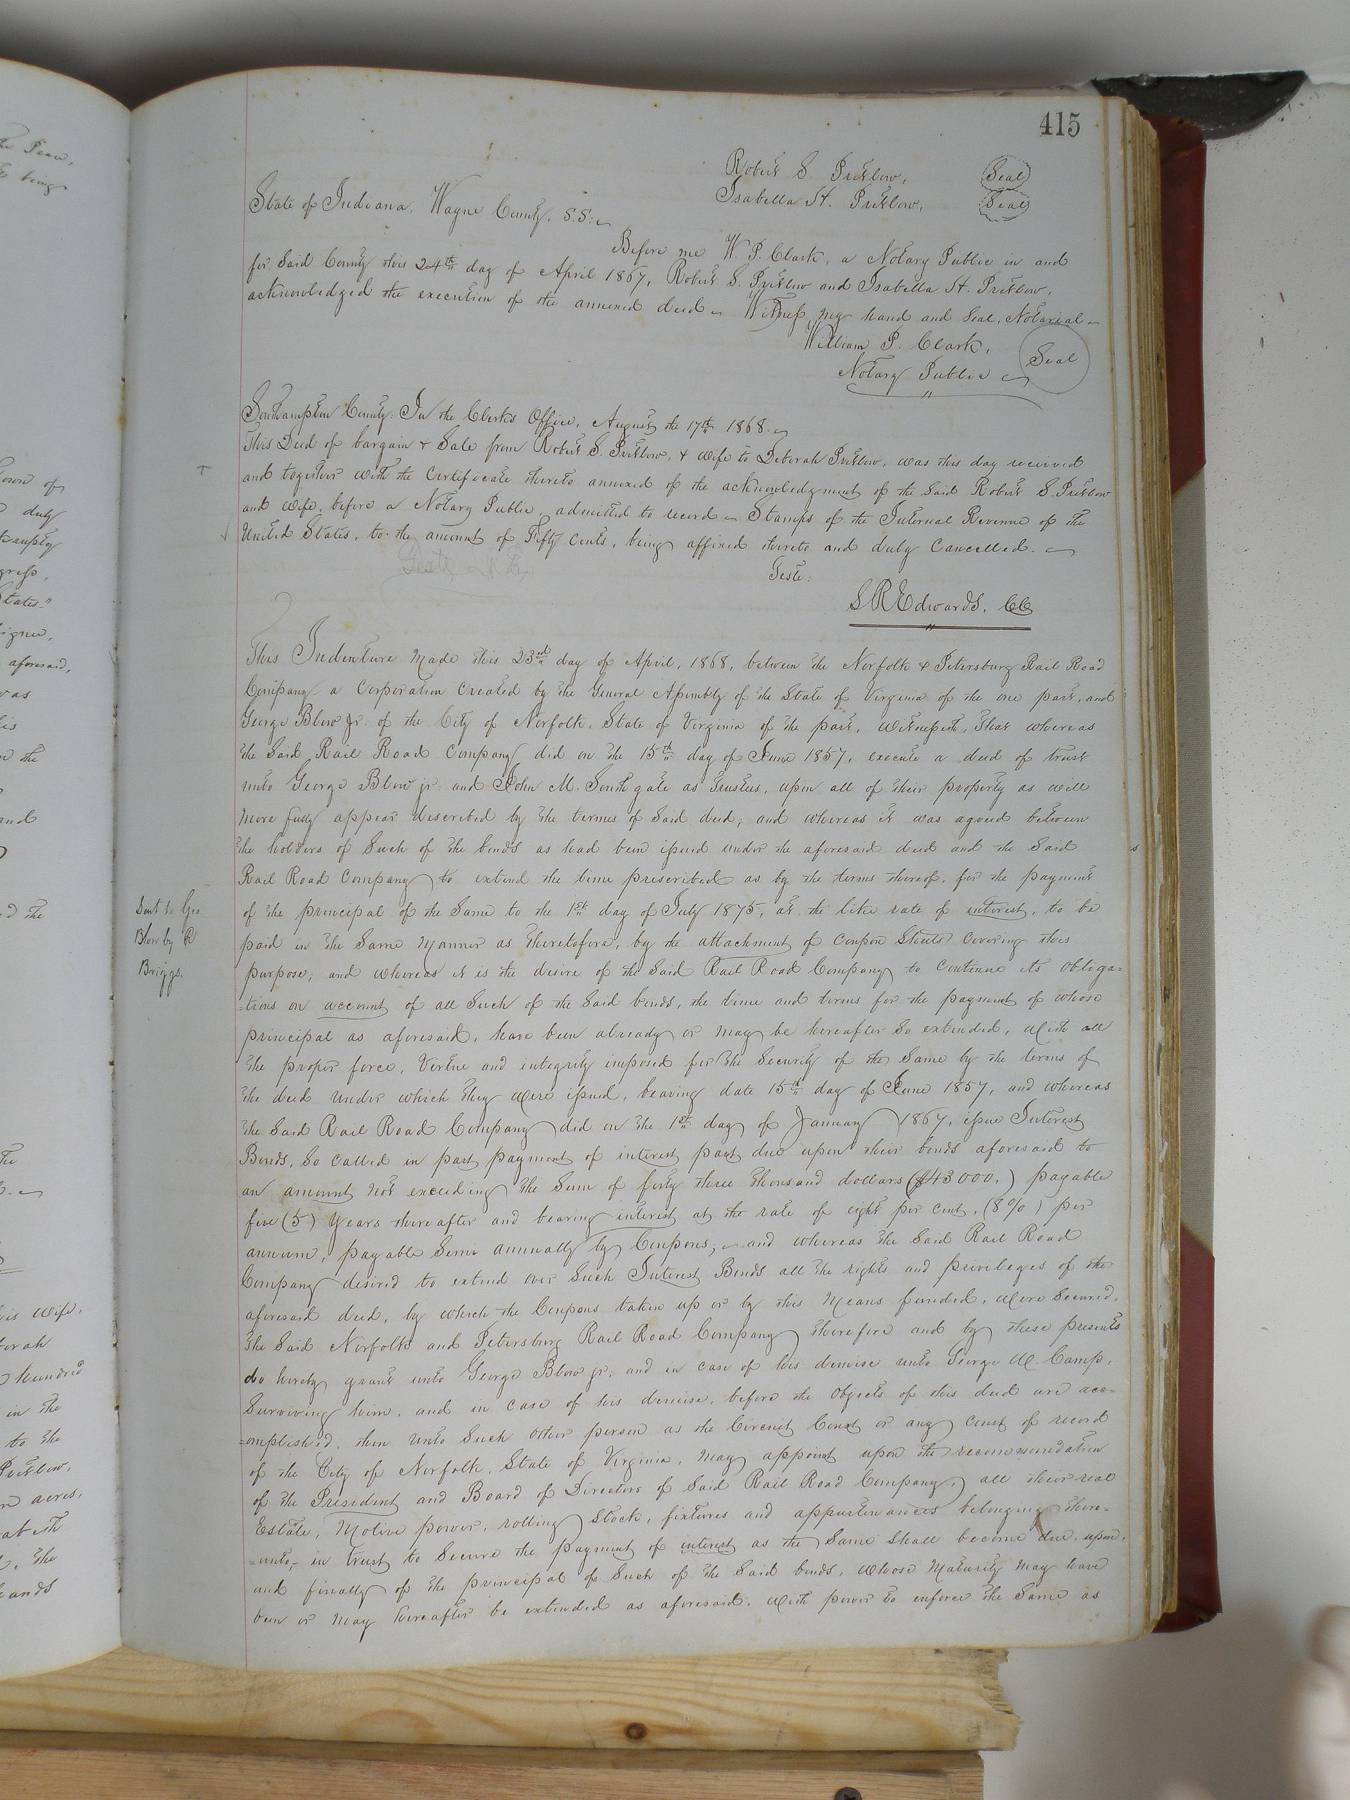 415
Robert S. Pretlow, Seal
Isabella H. Pretlow, Seal
State of Indiana, Wayne County, S.S:
Before me W. P. Clark, a Notary Public in and
for Said County this 24th day of April 1867, Robert S. Pretlow and Isabella H. Pretlow,
acknowledged the execution of the annexed deed - Witness my hand and Seal, Notarial -
William P. Clark, Seal
Notary Public
Southampton County. In the Clerks Office, August the 17th 1868.
This Deed of bargain & Sale from Robert S. Pretlow, & wife to Deborah Pretlow, was this day received
and together with the Certificate thereto annexed of the acknowledgment of the Said Robert S. Pretlow
and wife, before a Notary Public, admitted to record - Stamps of the Internal Revenue of the
United States, to the amount of Fifty Cents, being affixed thereto and duly Cancelled.
Teste:
L R Edwards, CC
This Indenture Made this 23rd day of April, 1868, between the Norfolk & Petersburg Rail Road
Company a Corporation Created by the General Assembly of the State of Virginia of the one part, and
George Blow Jr. of the City of Norfolk, State of Virginia of the part, Witnesseth, That whereas
the Said Rail Road Company did on the 15th day of June 1857, execute a deed of trust
unto George Blow jr. and John M. Southgate as Trustees, upon all of their property as will
More fully appear described by the terms of Said deed; and whereas it was agreed between
the holders of Such of the bonds as had been issued under the aforesaid deed and the Said
Rail Road Company to extend the time prescribed as by the terms thereof, for the payment
of the principal of the Same to the 1st day of July 1875, at the like rate of interest, to be
paid in the Same Manner as theretofore, by the attachment of Coupon Sheets Covering this
purpose; and whereas it is the desire of the Said Rail Road Company to Continue its Obliga-
-tions on account of all Such of the Said bonds, the time and terms for the payment of whose
principal as aforesaid, have been already or May be hereafter So extended, With all
the proper force, Virtue and integrity imposed for the Security of the Same by the terms of
the deed under which they Were issued, bearing date 15th day of June 1857, and whereas
the Said Rail Road Company did on the 1st day of January 1867, issue Interest
Bonds, So Called in part payment of interest past due upon their bonds aforesaid to
an amount Not exceeding the Sum of forty three thousand dollars ($43000.) payable
five (5) Years thereafter and bearing interest at the rate of eight per cent. (8%) per
annum, payable Semi annually by Coupons; - and whereas the Said Rail Road
Company desired to extend over Such Interest Bonds all the rights and privileges of the
aforesaid deed, by which the Coupons taken up or by this Means funded, Were Secured,
the Said Norfolk and Petersburg Rail Road Company therefore and by these presents
do hereby grant unto George Blow jr; and in case of his demise unto George W. Camp,
Surviving him, and in case of his demise, before the Objects of this deed are acc-
-omplished, then unto Such other person as the Circuit Court or any Court of record
of the City of Norfolk, State of Virginia, May appoint upon the recommendation
of the President and Board of Directors of Said Rail Road Company, all their real
Estate, Motive power, rolling Stock, fixtures and appurtenances belonging there-
-unto, in trust to Secure the payment of interest as the Same Shall become due upon,
and finally of the principal of Such of the Said bonds, whose Maturity May have
been or May hereafter be extended as aforesaid. With power to enforce the Same as
Sent to Geo
Blow by R
Briggs.